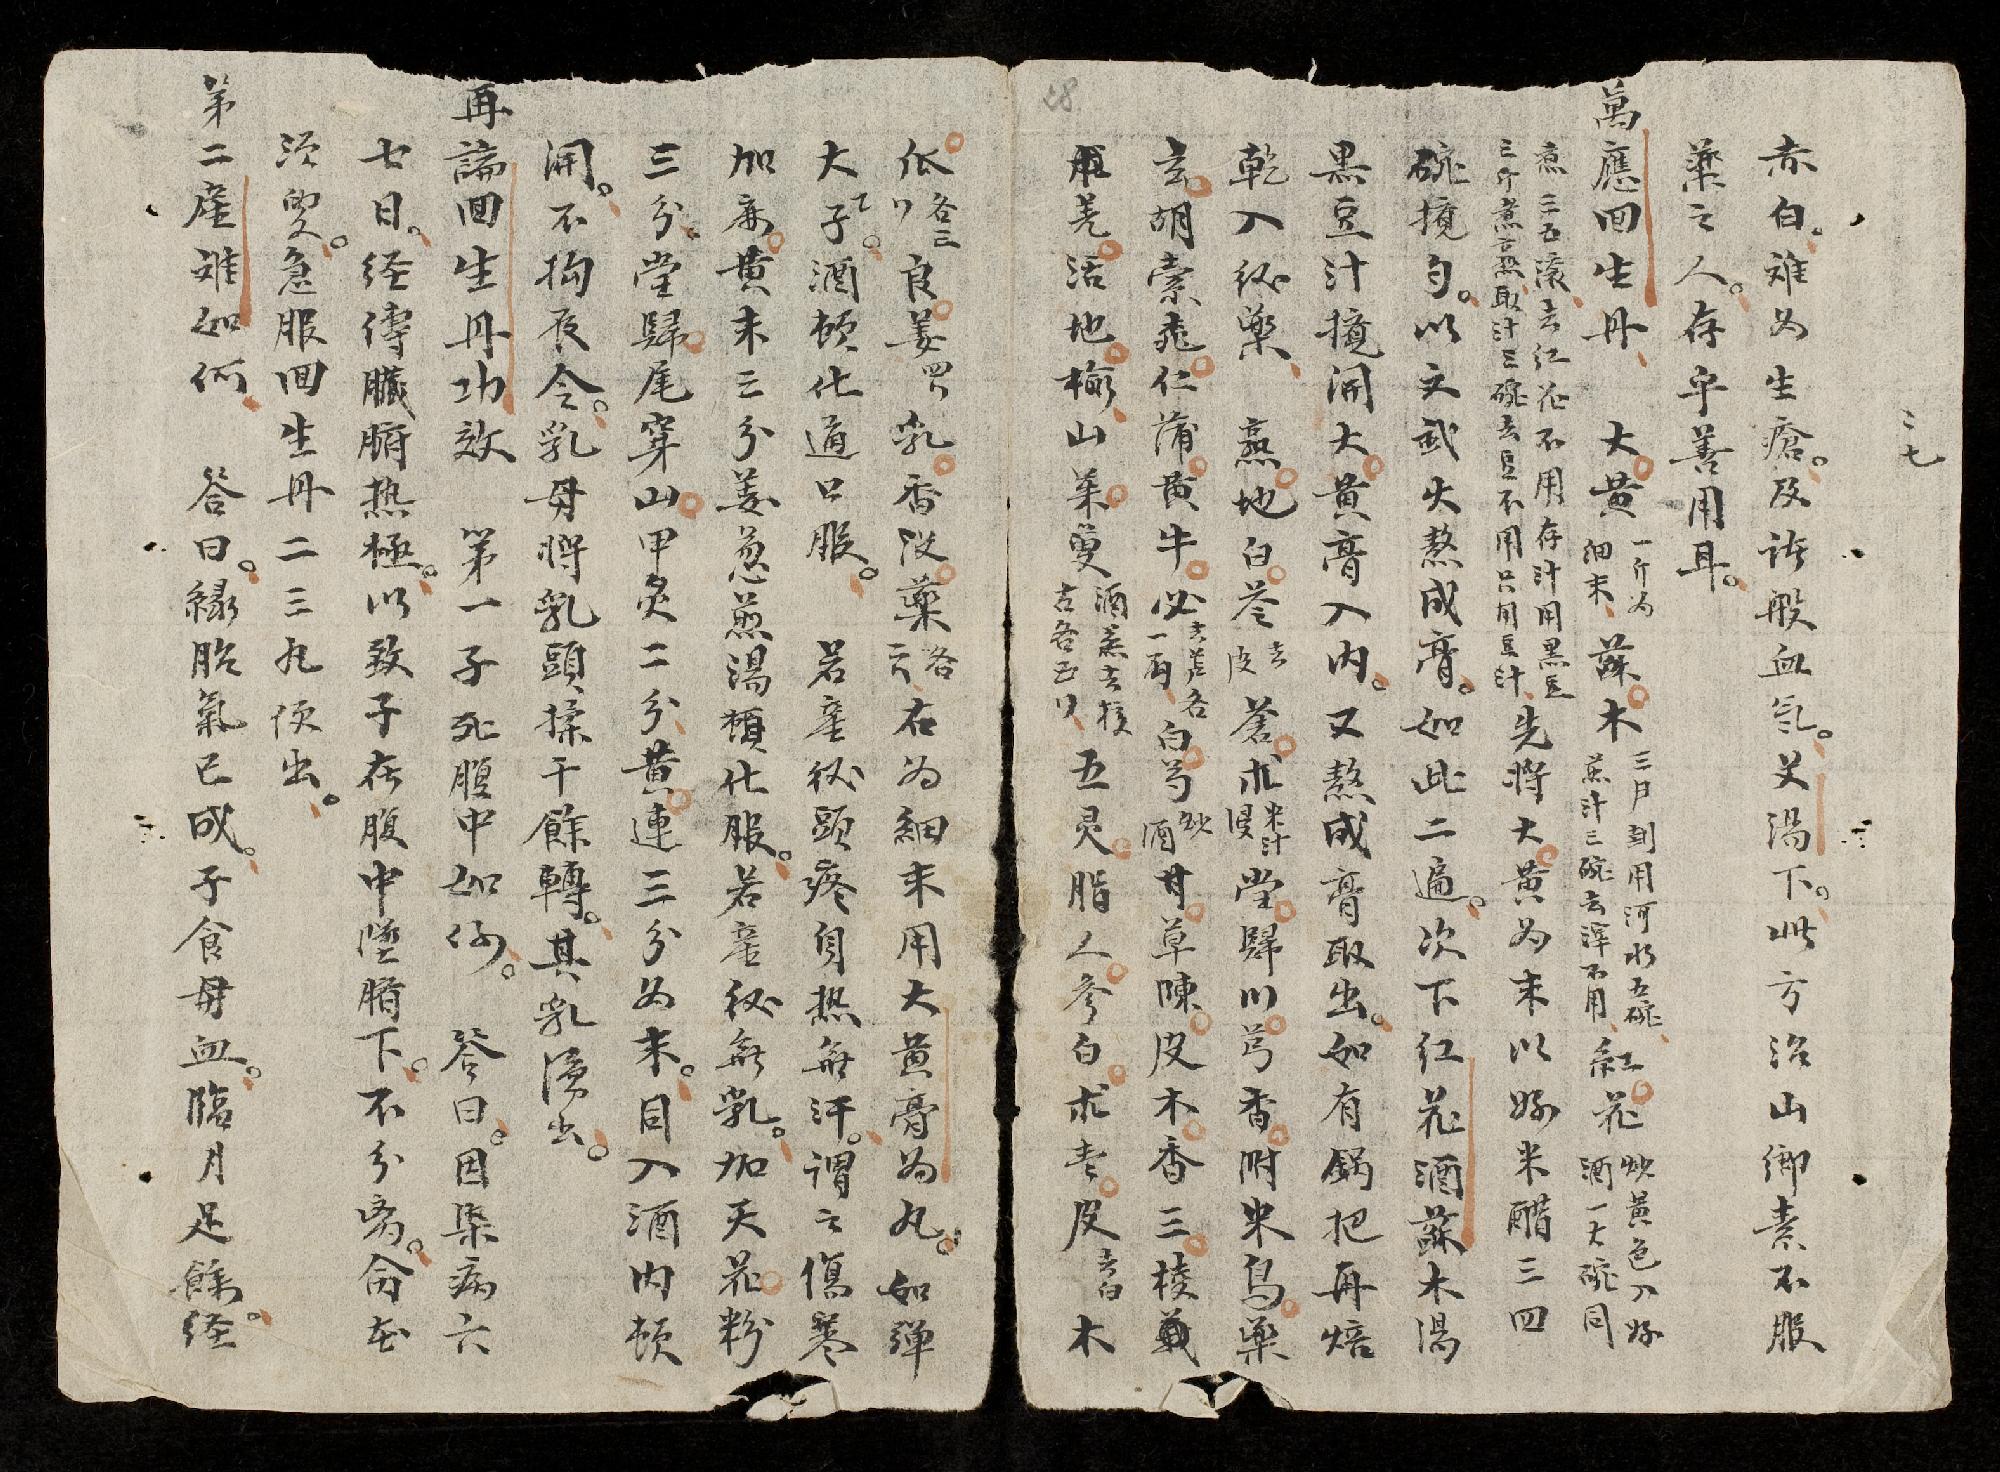 二七
赤白。难为生瘡。及诸般血氣。艾湯下。此方治山鄉素不服
藥之人。存乎善用耳。
萬應回生丹、　大黄一斤为細末、蘇木三斤剉用河水五碗、煎汁三碗去滓不用、紅花炒黄色入好酒一大碗同
煮三五滚、去红花不用存汁用黑豆三斤煮熟取汁三碗去豆不用只用豆汁、先將大黄为末以好米醋三四
碗攪匀。以文武火熬成膏。如此二遍。次下红花酒蘇木湯
黑豆汁攪開大黄膏入内。又熬成膏取出。如有鍋把再焙
乾入后藥、　熟地白苓去皮蒼术米汁浸當歸川芎香附米烏藥
玄胡索桃仁蒲黄牛必去芦各一両、白芍酒炒甘草陳皮木香三棱莪
术羌活地榆山茱萸酒蒸去核各五卜、五灵脂人參白术青皮去白木
瓜各三卜良姜四卜乳香没藥各一卜、右为細末用大黄膏为丸。如弹
大子。酒顿化通口服。　若産後頭疼身热無汗。謂之傷寒
加麻黄末三分姜葱煎湯頓化服。若産後無乳。加天花粉
三分。當歸尾穿山甲炙二分、黄連三分为末。同入酒内顿
開。不拘夜令。乳母將乳頭揉千餘轉。其乳湧出。
再論回生丹功效　第一子死腹中如何。　答曰。因染病六
七日。经傳臟腑热極。以致子在腹中墜脂下。不分离。命在
须臾。急服回生丹二三丸便出。
第二産难如何、　答曰。緣胎氣已成。子食母血。臨月足餘経
28